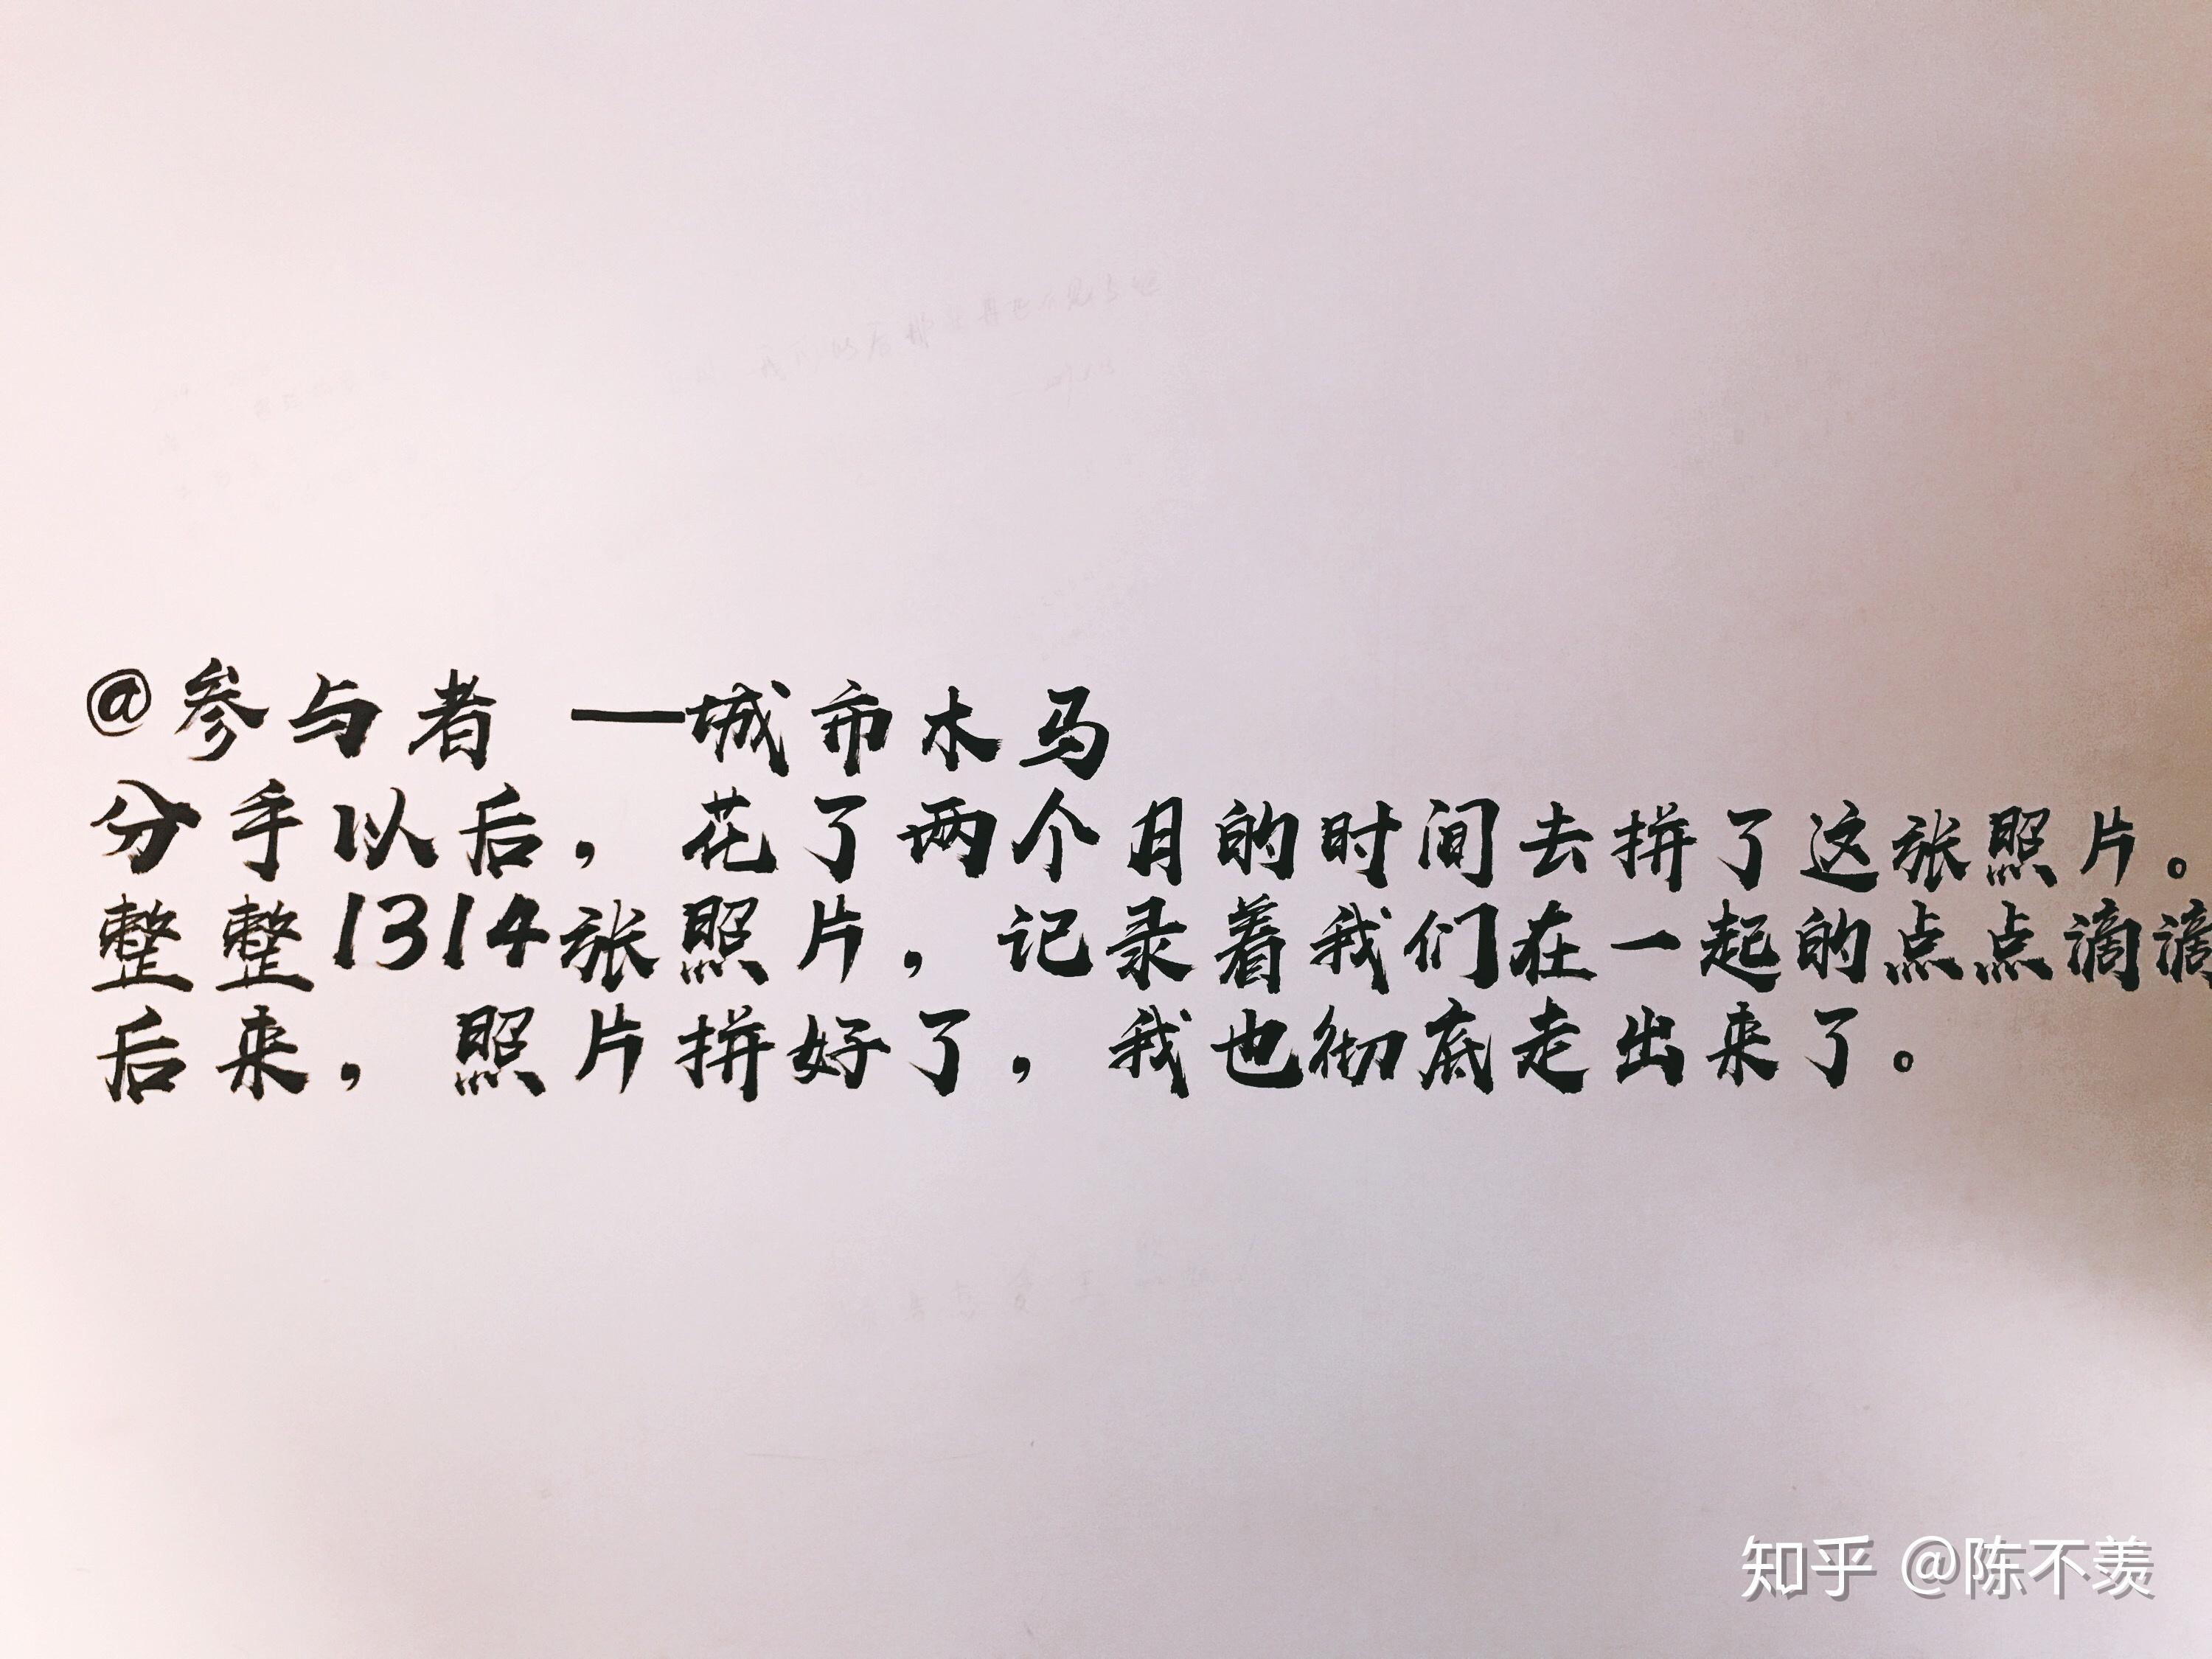 @参与者 —城市木马
分手以后，花了两个月的时间去拼了这张照片。
整整1314张照片，记录着我们在一起的点点滴滴
后来，照片拼好了，我也彻底走出来了。
知乎 @陈不羡